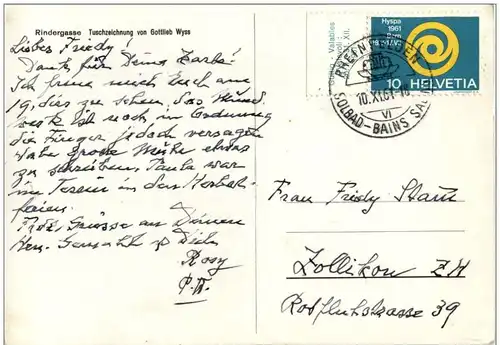 Rindergasse Tuschzeichnung von Gottlieb Wyss
Liebes Friedy!
Dank für Deine Karte!
Ich freue mich Euch am
19. das zu sehen, das Mund-
werk ist noch in Ordnung
die Finger jedoch versagen
habe grosse Mühe etwas
zu schreiben, Paula war
im Tessin in den Herbst-
ferien.
Frdl. Grüsse an Deinen
Herr Gemahl & Dich
Rosy
Valables
XII.
Hyspa
1961
Bern
10 HELVETIA
RHEINFELDEN
10.XI.61
VI
SOLBAD-BAINS SAL
Frau Friedy Stam
Zollikon ZH
Rotfluhstrasse 39